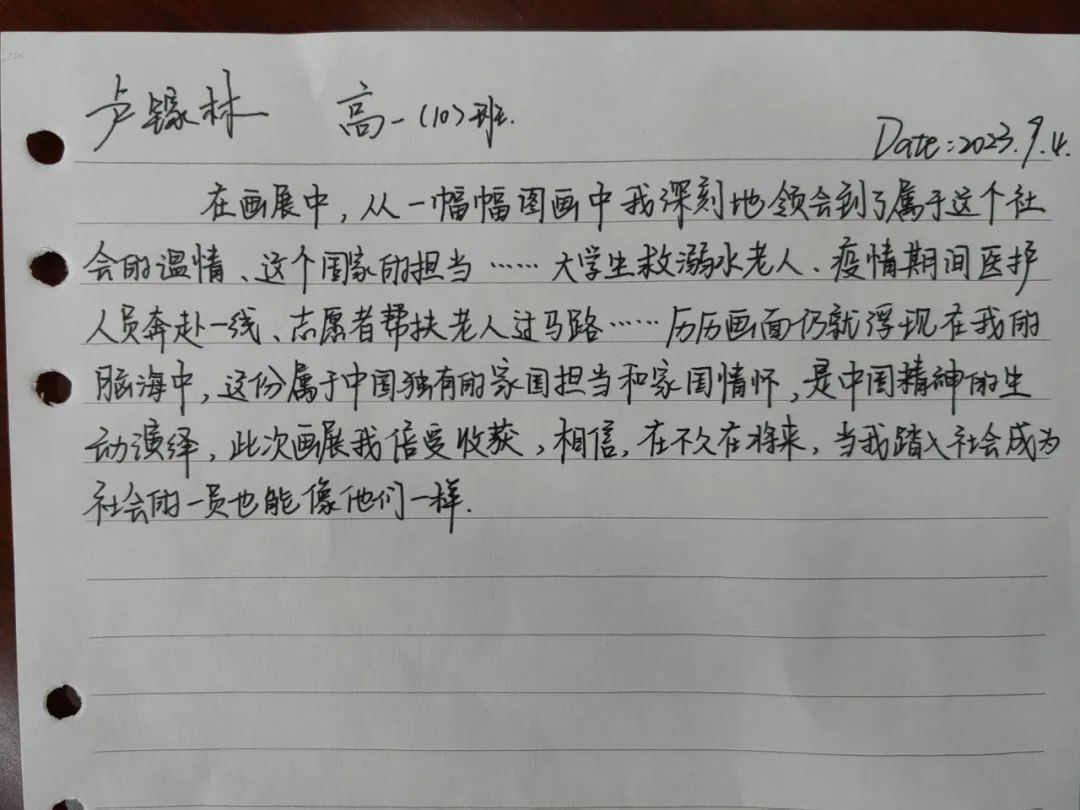 卢锿林 高一(10)班.
Date:2023.9.4.
在画展中，从一幅幅图画中我深刻地领会到了属于这个社
会的温情、这个国家的担当……大学生救溺水老人、疫情期间医护
人员奔赴一线、志愿者帮扶老人过马路……历历画面仍就浮现在我的
脑海中，这份属于中国独有的家国担当和家国情怀，是中国精神的生
动演绎，此次画展我倍受收获，相信，在不久在将来，当我踏入社会成为
社会的一员也能像他们一样.